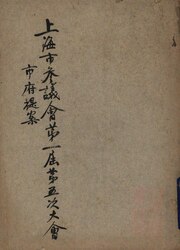 上海市参議會第一屆第五次大會
市府提案